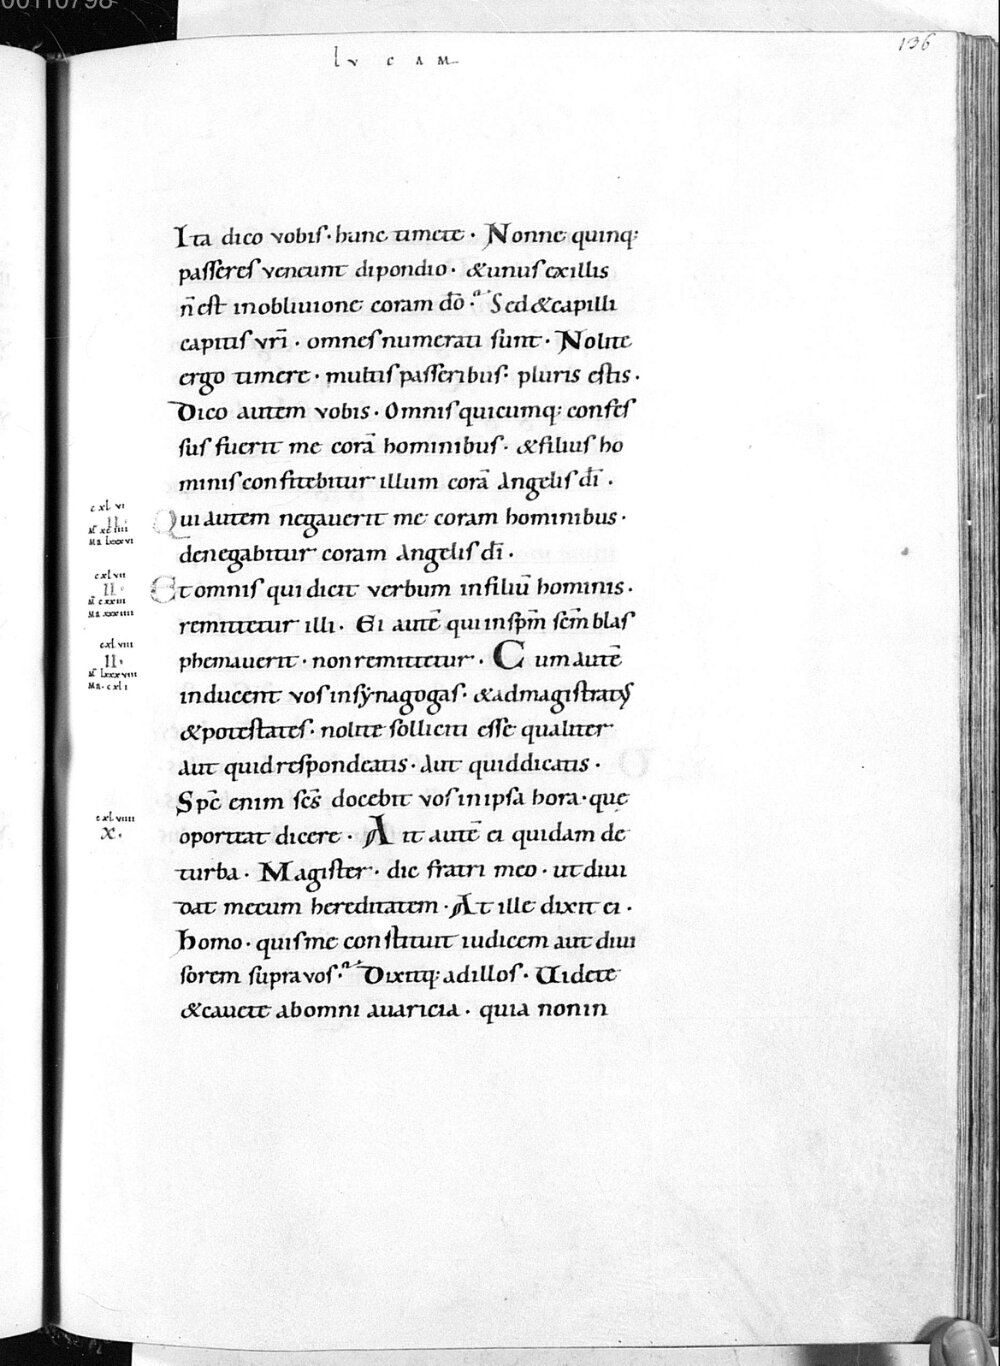 00110798
lu c a m
136
Ita dico vobis · hunc timete · Nonne quinq;
passeres veneunt dipondio · & unus ex illis
n̄ est in obliuione coram dō · Sed & capilli
capitis vr̄i · omnes numerati sunt · Nolite
ergo timere · multis passeribus · pluris estis ·
Dico autem vobis · Omnis quicumq; confes
sus fuerit me corā hominibus · & filius ho
minis confitebitur illum corā Angelis dī ·
cxlvi
Qui Autem negauerit me coram hominibus ·
denegabitur coram Angelis dī ·
cxlvii
II ·
Et omnis qui dicit verbum in filiū hominis ·
remittetur illi · Ei autē qui in spm̄ scm̄ blas
cxlviii
II ·
phemauerit · non remittetur · Cum autē
inducent vos in synagogas · & ad magistratus
& potestates · nolite solliciti esse qualiter
aut quid respondeatis · Aut quid dicatis ·
Spc̄ enim scs̄ docebit vos in ipsa hora · que
cxlviiii
X ·
oporteat dicere · Ait autē ei quidam de
turba · Magister · dic fratri meo · ut diui
dat mecum hereditatem · At ille dixit ei ·
Homo · quis me constituit iudicem aut diui
sorem supra vos · Dixitq; ad illos · Uidete
& cauete ab omni auaricia · quia non in